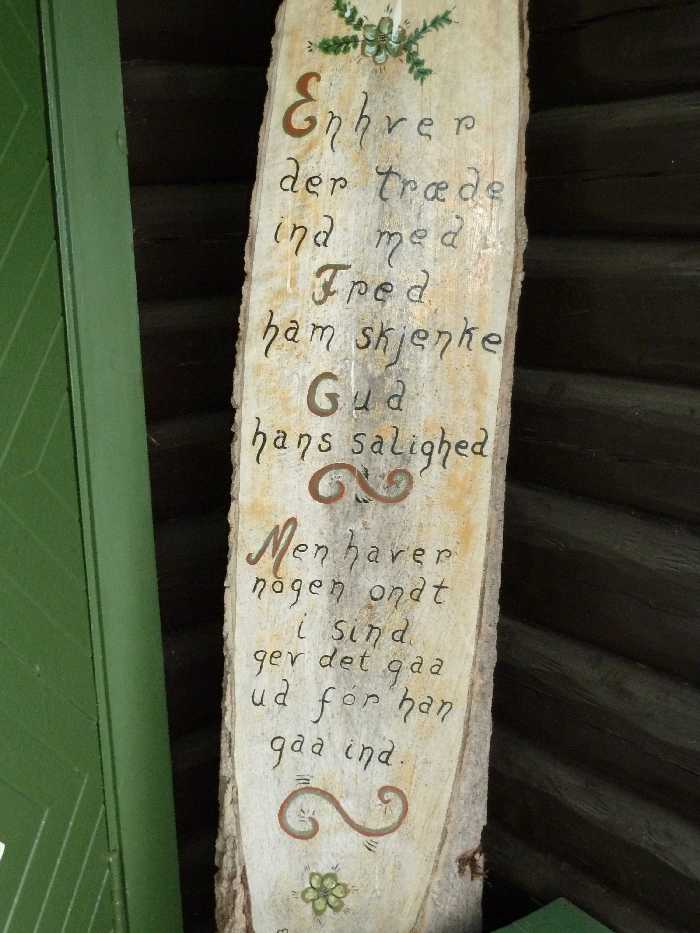 Enhver
der træde
ind med
Fred
ham skjenke
Gud
hans salighed
Men haver
nogen ondt
i sind.
ger det gaa
ud før han
gaa ind.